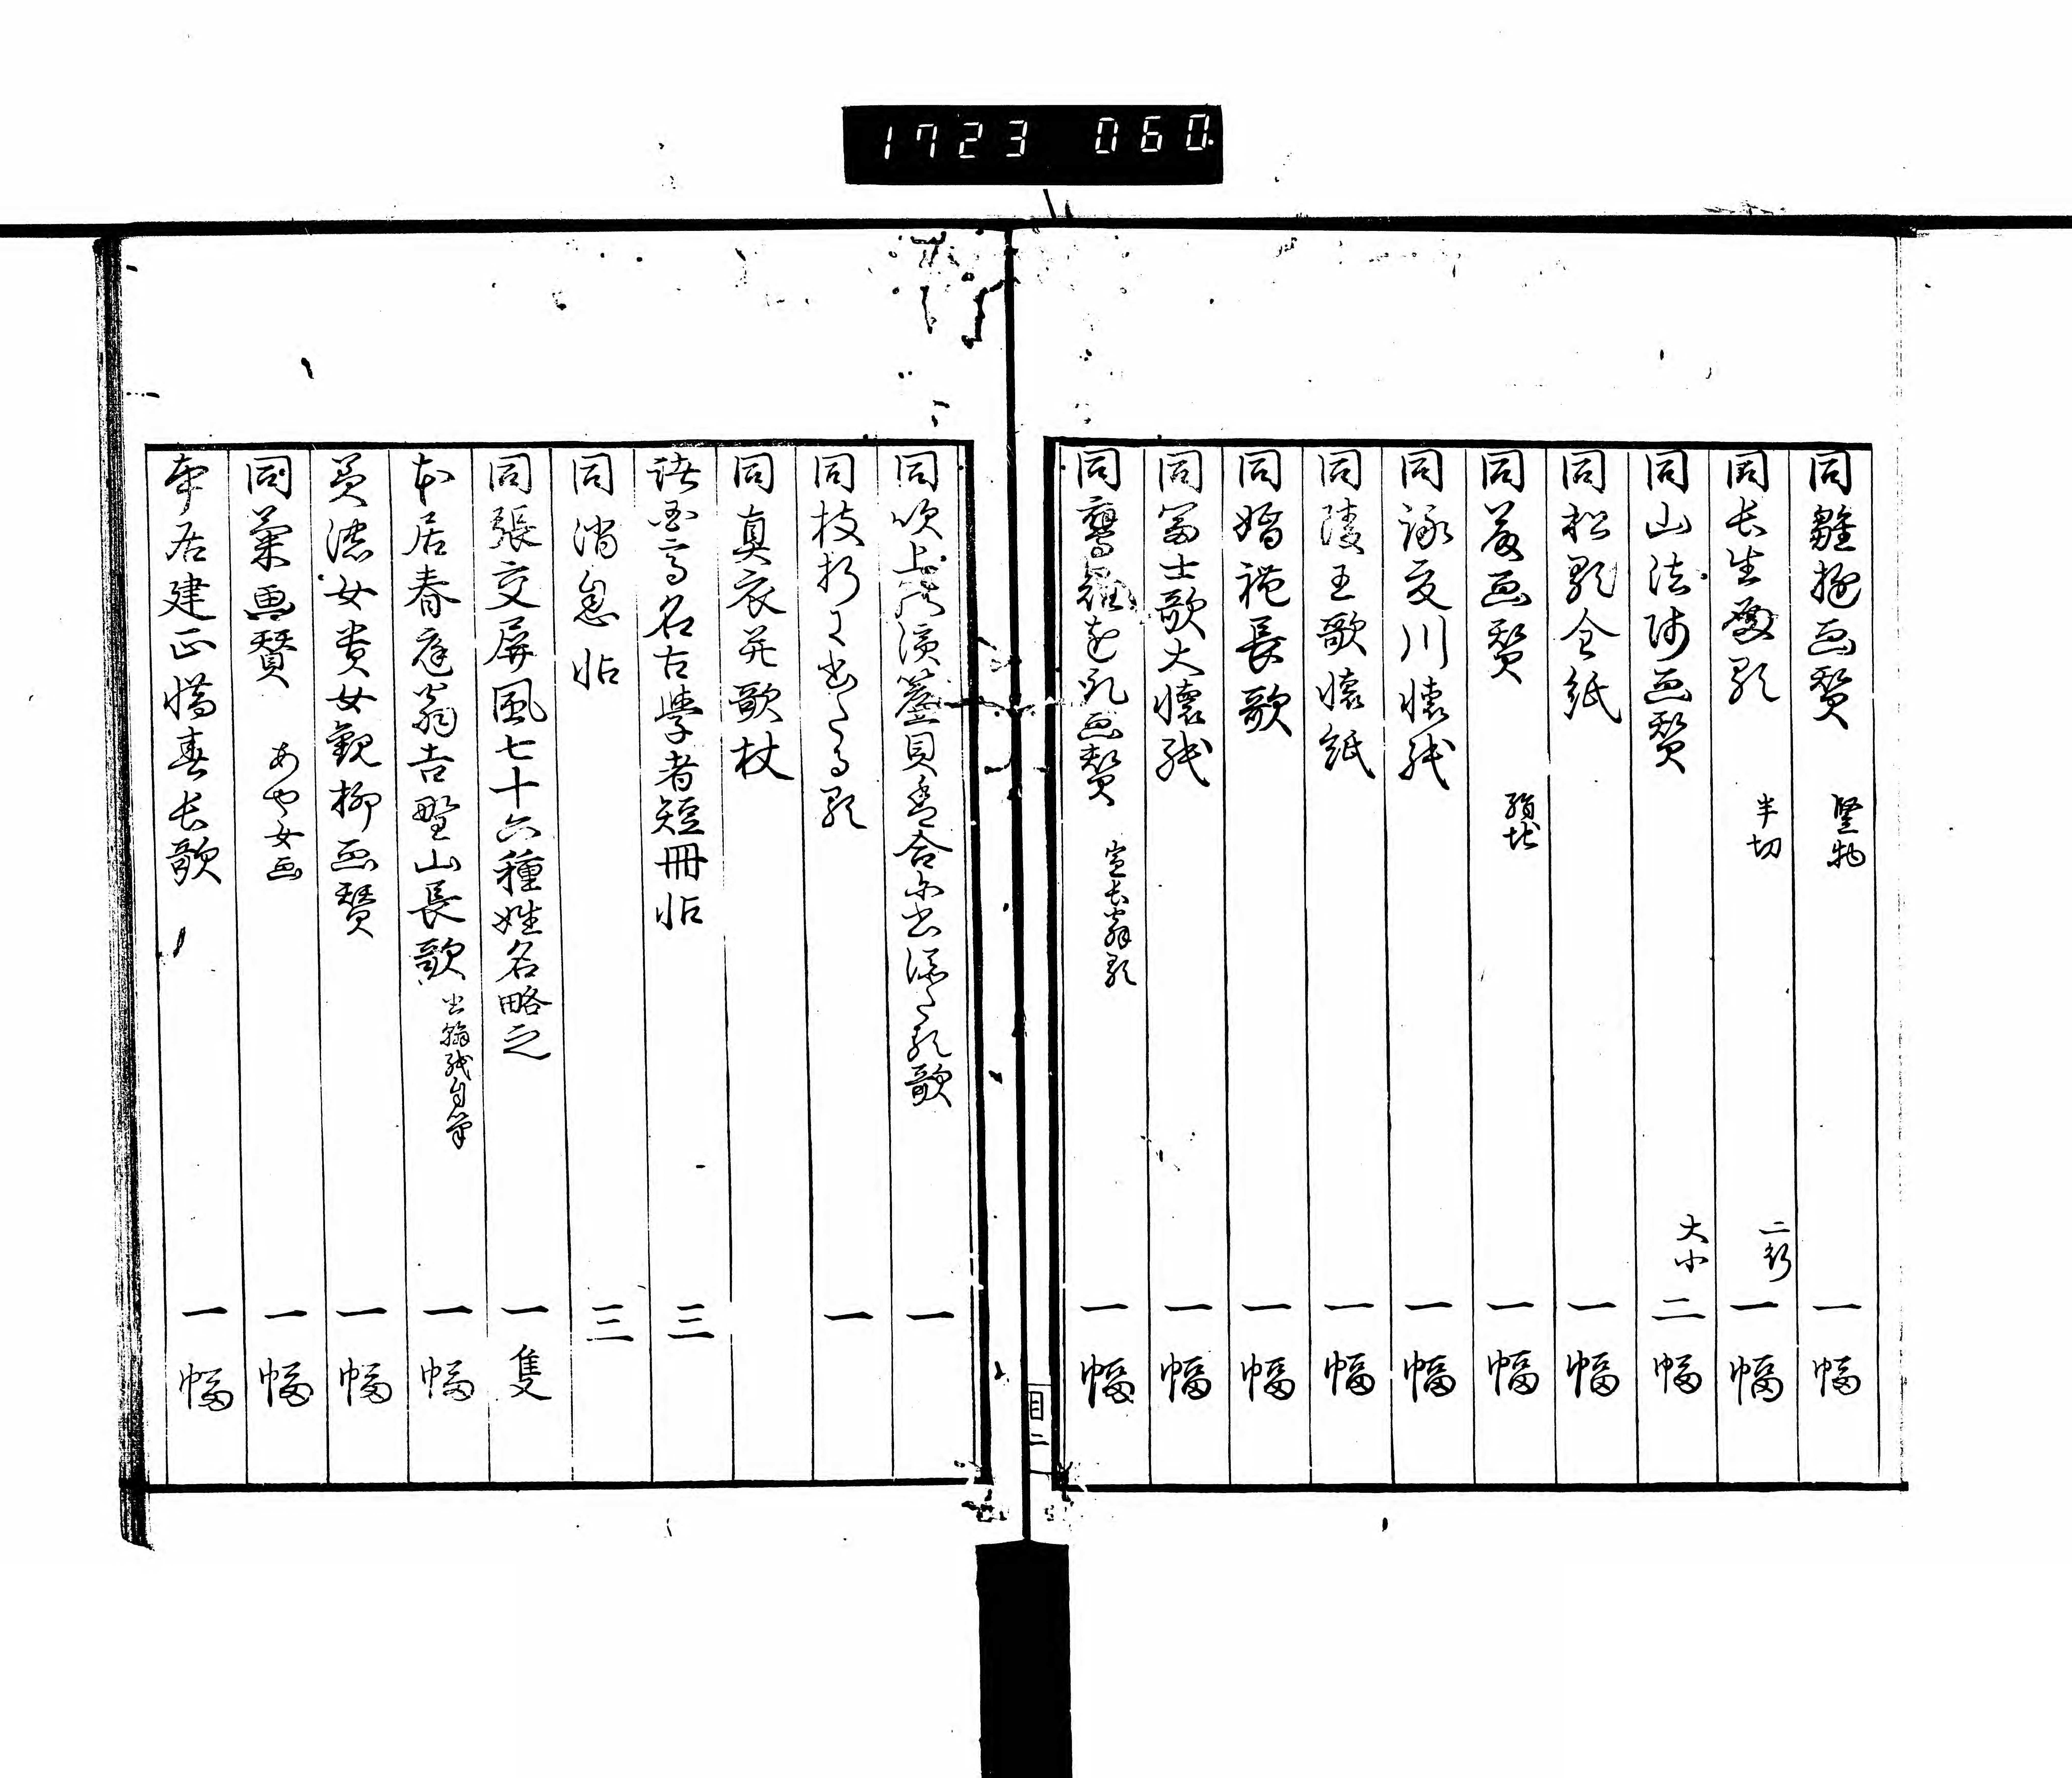 1723 060
同雛遊画賛 竪物 一幅
同長生殿歌 半切 二形 一幅
同山法师画賛 大小 二幅
同松歌全紙 一幅
同菊画賛 絹地 一幅
同詠夜川懐紙 一幅
同陵王歌懐紙 一幅
同婚礼長歌 一幅
同富士歌大懐紙 一幅
同鶯画賛 宣長翁歌 一幅
目二
同吹上濱貝合歌 一
同枝折歌 一
同真衣并歌杖
諸国高名古學者短冊帖 三
同消息帖 三
同張交屏風七十六種姓名略之 一隻
本居春庭翁吉野山長歌 自筆 一幅
美濃女貴女観柳画賛 一幅
同菊画賛 あや女画 一幅
本居建正惜春長歌 一幅